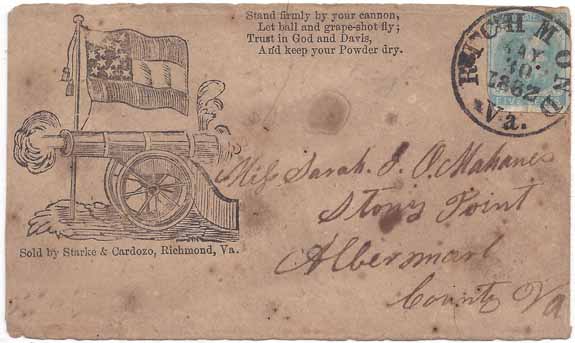 Stand firmly by your cannon,
Let ball and grape-shot fly;
Trust in God and Davis,
And keep your Powder dry.
RICHMOND
MAY
30
1862
Va.
FIVE
Sold by Starke & Cardozo, Richmond, Va.
Miss Sarah J. O. Mahanes
Stony Point
Albermarl
County Va